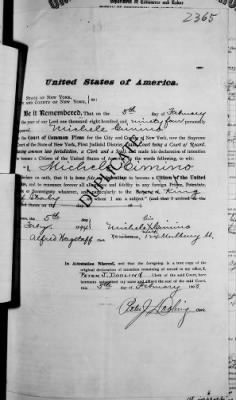 Department of Commerce and Labor
2365
United States of America.
STATE OF NEW YORK,
CITY AND COUNTY OF NEW YORK, } ss:
Be it Remembered, That on the 5th day of February
in the year of our Lord one thousand eight hundred and ninety four personally
appeared Michele Cimino
in the Court of Common Pleas for the City and County of New York, now the Supreme
Court of the State of New York, First Judicial District
having common law jurisdiction, a Clerk and a Seal) and made his declaration of intention
to become a Citizen of the United States of America in the words following, to wit:
I, Michele Cimino
DUPLICATE
do declare on oath, that it is bona fide my intention to become a Citizen of the United
States, and to renounce forever all allegiance and fidelity to any foreign Prince, Potentate,
State or Sovereignty whatever, and particularly to the King
of Italy of whom I am a subject
this 5th
Feby. 1894
Michele Cimino
Alfred Wagstaff
In Attestation Whereof, and that the foregoing is a true copy of the
original declaration of intention remaining of record in my office, I,
PETER J. DOOLING Clerk of the said Court, have
hereunto subscribed my name and affixed the seal of the said Court,
this 5th day of February 190
Peter J. Dooling Clerk.